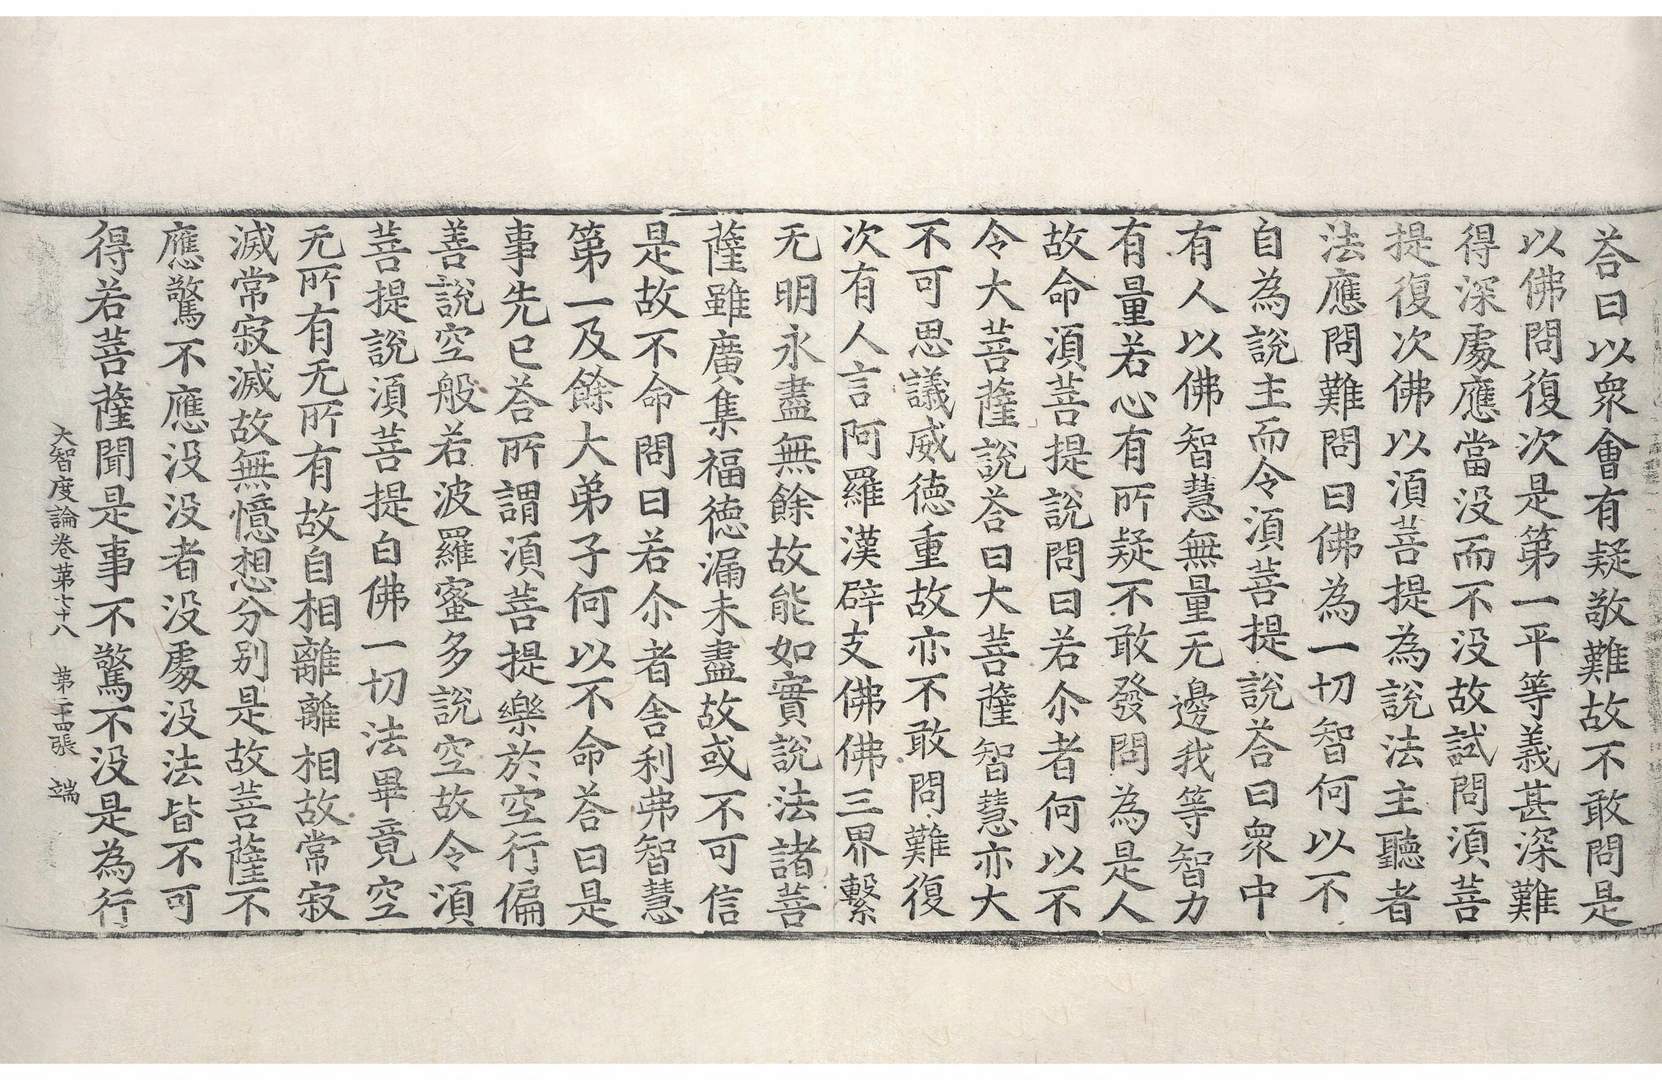 荅曰以衆會有疑敬難故不敢問是
以佛問復次是第一平等義甚深難
得深處應當没而不没故試問須菩
提復次佛以須菩提為說法主聽者
法應問難問曰佛為一切智何以不
自為說主而令須菩提說荅曰衆中
有人以佛智慧無量无邊我等智力
有量若心有所疑不敢發問為是人
故命須菩提說問曰若尒者何以不
令大菩薩說荅曰大菩薩智慧亦大
不可思議威德重故亦不敢問難復
次有人言阿羅漢辟支佛佛三界繫
无明永盡無餘故能如實說法諸菩
薩雖廣集福德漏未盡故或不可信
是故不命問曰若尒者舍利弗智慧
第一及餘大弟子何以不命荅曰是
事先已荅所謂須菩提樂於空行偏
善說空般若波羅蜜多說空故令須
菩提說須菩提白佛一切法畢竟空
无所有无所有故自相離離相故常寂
滅常寂滅故無憶想分別是故菩薩不
應驚不應没没者没處没法皆不可
得若菩薩聞是事不驚不没是為行
大智度論卷第七十八 第二十四張 端